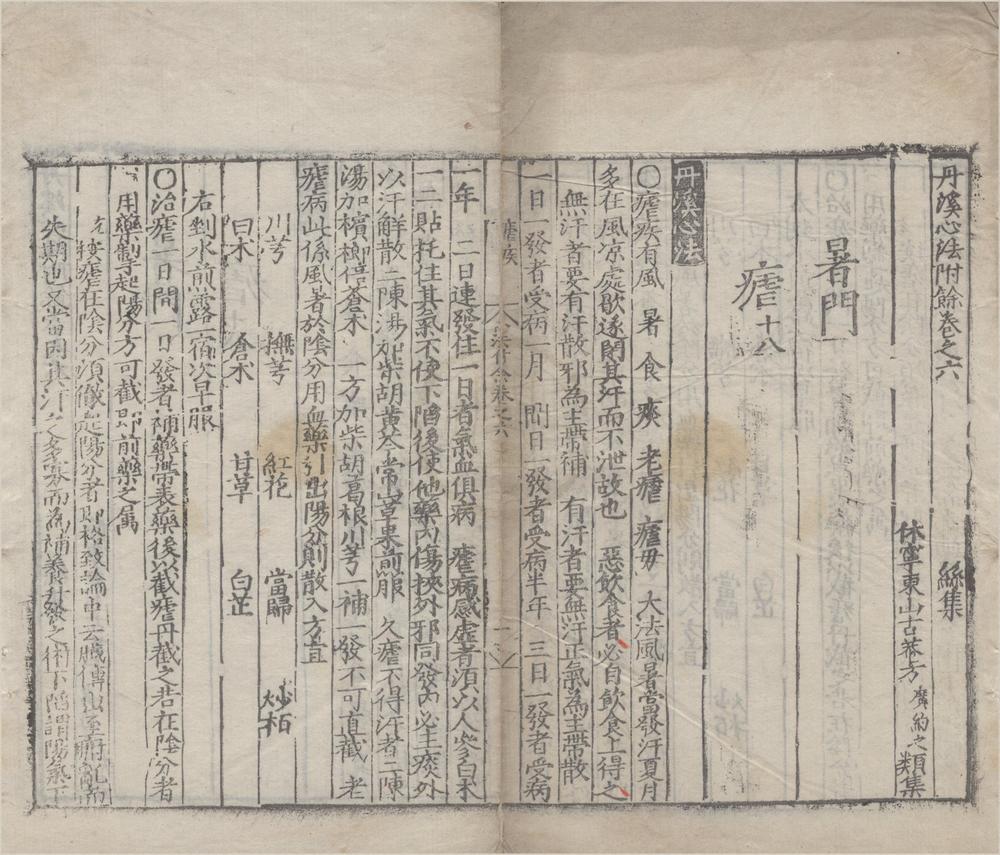 丹溪心法附餘卷之六　絲集
休寧東山古菴方廣約之類集
暑門
瘧十八
丹溪心法
〇瘧疾有風　暑　食　痰　老瘧　瘧毋　大法風暑當發汗夏月
多在風凉處歇遂閉其汗而不泄故也　惡飲食者必自飲食上得之
無汗者要有汗散邪為主帶補　有汗者要無汗正氣為主帶散
一日一發者受病一月　間日一發者受病半年　三日一發者受病
瘧疾　卷之六　一
一年　二日連發住一日者氣血俱病　瘧病感虛者須以人參白术
一二貼托住其氣不使下陷後使他藥内傷挾外邪同發内必主痰外
以汗解散二陳湯加柴胡黄芩常山草果煎服　久瘧不得汗者二陳
湯加檳榔倍蒼术　一方加柴胡葛根川芎一補一發不可直截　老
瘧病此係風暑於陰分用血藥引出陽分則散入方宜
川芎　撫芎　紅花　當歸　炒栢
白术　蒼术　甘草　白芷
右剉水煎露一宿次早服
〇治瘧一日間一日發者補藥帶表藥後以截瘧丹截之若在陰分者
用藥掣起陽分方可截即前藥之属
按瘧在陰分須徹起陽分者即格致論中云臟傳出至府亂而
失期也又當因其汗之多寡而為補養升發之術下陷謂陽氣下